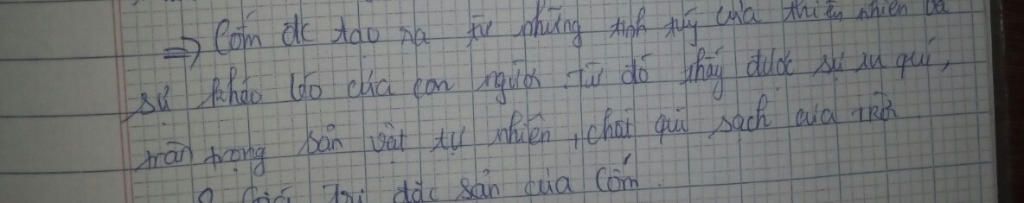 => Cốm đc tạo ra từ những tinh túy của thiên nhiên và
sự khéo léo của con người từ đó thấy được sự quí,
trân trọng sản vật tự nhiên, chất quí sạch của trời
2. Giá trị đặc sản của Cốm.